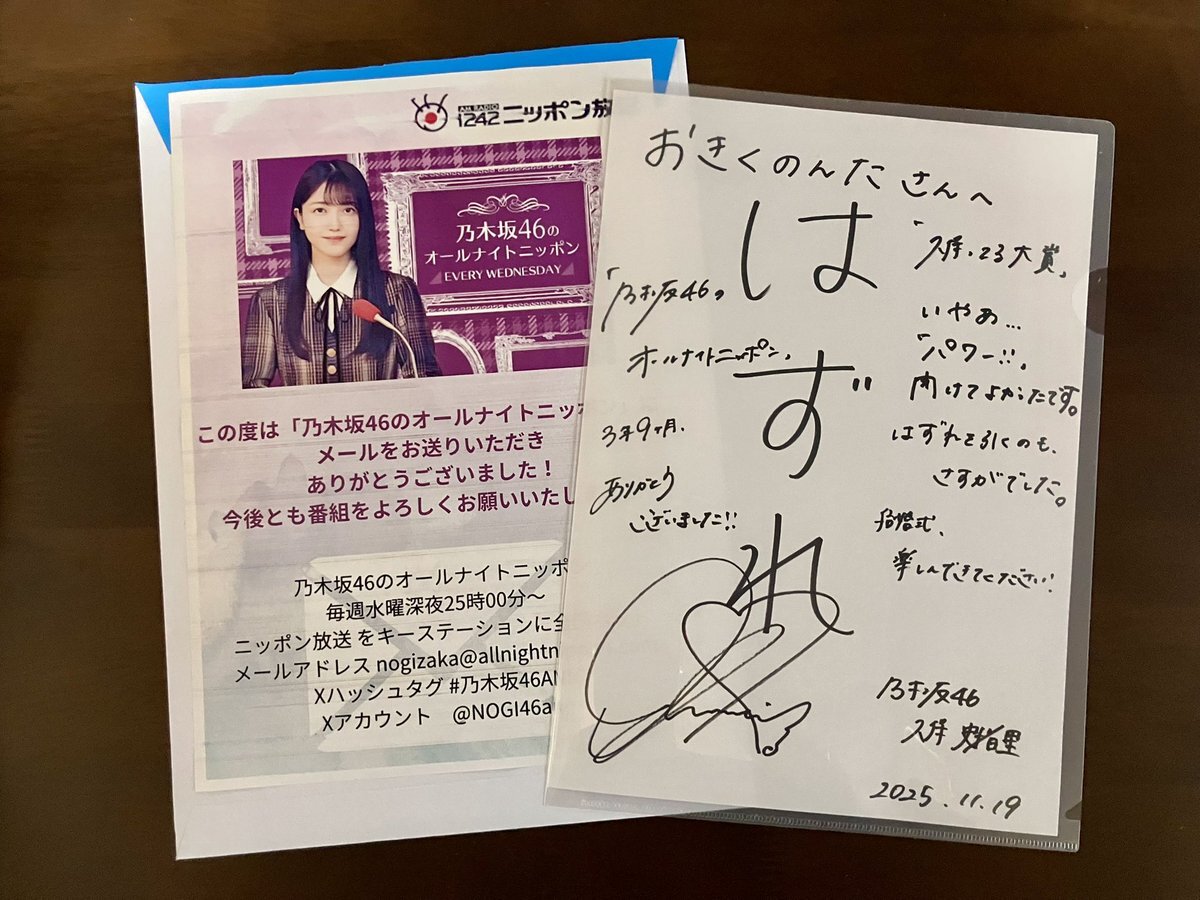 AM RADIO
1242 ニッポン放
乃木坂46の
オールナイトニッポン
EVERY WEDNESDAY
この度は「乃木坂46のオールナイトニッ
メールをお送りいただき
ありがとうございました！
今後とも番組をよろしくお願いいたし
乃木坂46のオールナイトニッポ
毎週水曜深夜25時00分～
ニッポン放送 をキーステーションに全
メールアドレス nogizaka@allnightn
Xハッシュタグ #乃木坂46AN
Xアカウント @NOGI46a
おきくのんたさんへ
はずれ
「乃木坂46の
オールナイトニッポン」
3年9ヶ月、
ありがとう
ございました!!
大賞」
いやぁ…
「パワー!!」
聞けてよかったです。
はずれを引くのも、
さすがでした。
結婚式、
楽しんできてください!
乃木坂46
久保 史緒里
2025.11.19